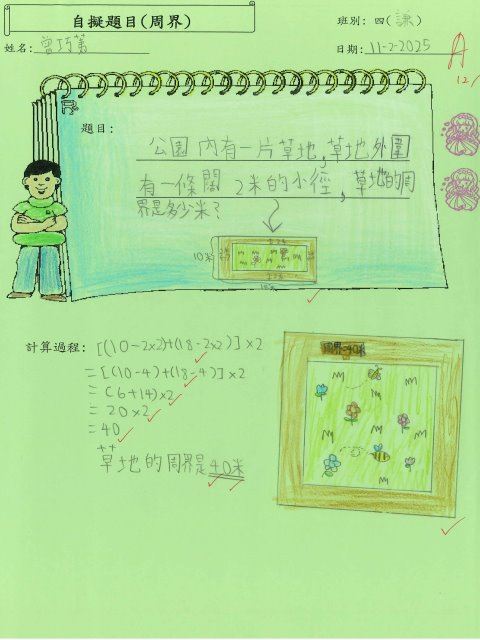 自擬題目(周界)
班別: 四(謙)
姓名: 曾巧蕎
日期: 11-2-2025
A
12/
題目:
公園內有一片草地,草地外圍
有一條闊 2米的小徑,草地的周
界是多少米?
10米
18米
計算過程: [(10-2x2)+(18-2x2)]x2
=[(10-4)+(18-4)]x2
=(6+14)x2
=20x2
=40
草地的周界是40米
周界=40米